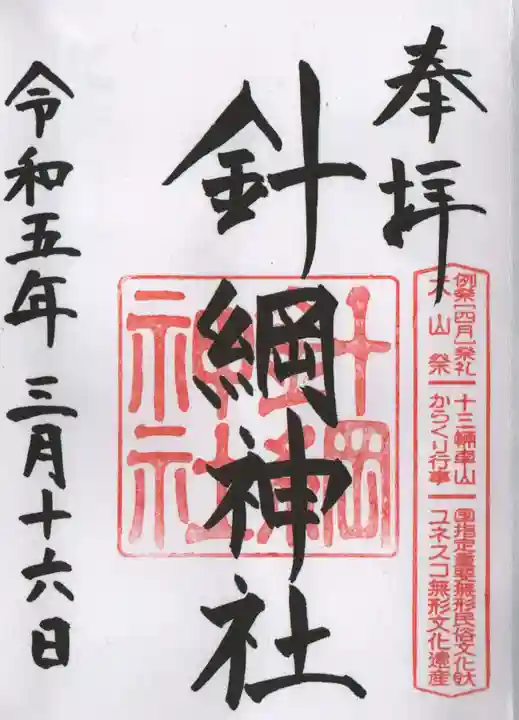 奉拝
例祭[四月]祭礼
犬山祭
十三輌車山
からくり行事
国指定重要無形民俗文化財
ユネスコ無形文化遺産
針綱神社
針綱神社
令和五年三月十六日